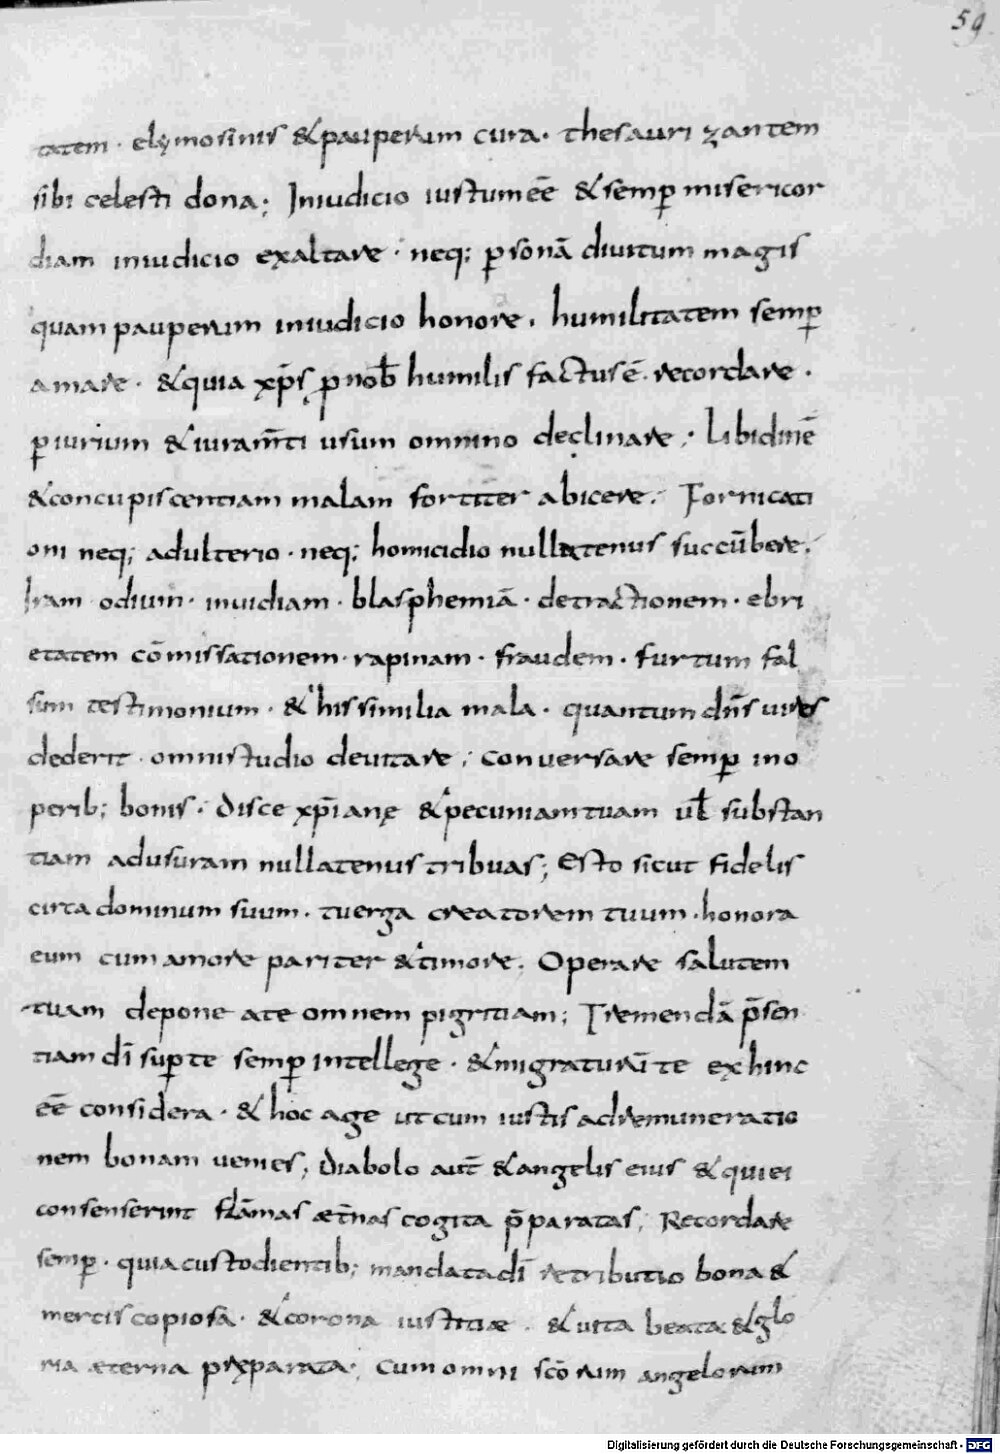 59
tatem · elymosinis & pauperum cura · thesaurizantem
sibi celesti dona; Iniudicio iustum eē & semp misericor
diam iniudicio exaltare · neq; p̱sonā diuitum magis
quam pauperum iniudicio honore. humilitatem semp̱
amare · & quia xp̄s ꝓ nob̄ humilis factus ē recordare ·
p̱iurium & iuram̄ti usum omnino declinare; Libidinē
& concupiscentiam malam fortiter abicere; Fornicati
oni neq; adulterio · neq; homicidio nullatenus succūbere;
Iram odium · inuidiam · blasphemiā · detractionem · ebri
etatem cōmissationem · rapinam · fraudem · furtum fal
sum testimonium · & his similia mala · quantum dn̄s uires
dederit · omni studio deuitare; conuersare semp̱ ino
perib; bonis · Disce xp̄iane & pecuniam tuam ul̄ substan
tiam adusuram nullatenus tribuas; Esto sicut fidelis
circa dominum suum · tu erga creatorem tuum · honora
eum cum amore pariter & timore. Operare salutem
tuam depone a te omnem pigritiam; Tremendā p̄sen
tiam dī sup̱ te semp̱ intellege · & migraturū te ex hinc
eē considera · & hoc age ut cum iustis adremuneratio
nem bonam uenies; Diabolo aut̄ & angelis eius & qui ei
consenserint flāmas æt̄nas cogita p̄paratas; Recordare
semp̱ · quia custodientib; mandata dī retributio bona &
mercis copiosa · & corona iustitiæ · & uita beata & glo
ria æterna pręparata; cum omni scō rum angelorum
Digitalisierung gefördert durch die Deutsche Forschungsgemeinschaft - DFG